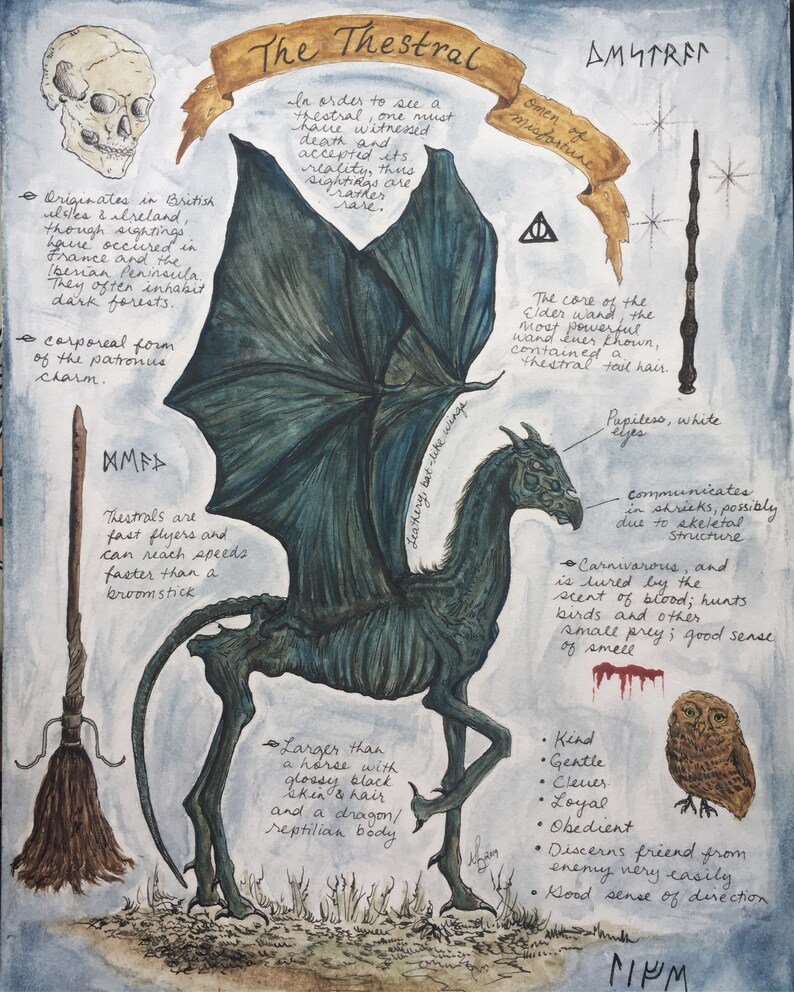 The Thestral
Omen of
Misfortune
In order to see a
thestral, one must
have witnessed
death and
accepted its
reality, thus
sightings are
rather
rare.
Originates in British
Isles & Ireland,
though sightings
have occured in
France and the
Iberian Peninsula.
They often inhabit
dark forests.
corporeal form
of the patronus
charm.
The core of the
Elder wand, the
most powerful
wand ever known,
contained a
thestral tail hair.
Pupiless, white
eyes
Leathery, bat-like wings
Communicates
in shrieks, possibly
due to skeletal
structure
Thestrals are
fast flyers and
can reach speeds
faster than a
broomstick
Carnivarous, and
is lured by the
scent of blood; hunts
birds and other
small prey; good sense
of smell
Larger than
a horse with
glossy black
skin & hair
and a dragon/
reptilian body
• Kind
• Gentle
• Clever
• Loyal
• Obedient
• Discerns friend from
enemy very easily
• Good sense of direction
2019